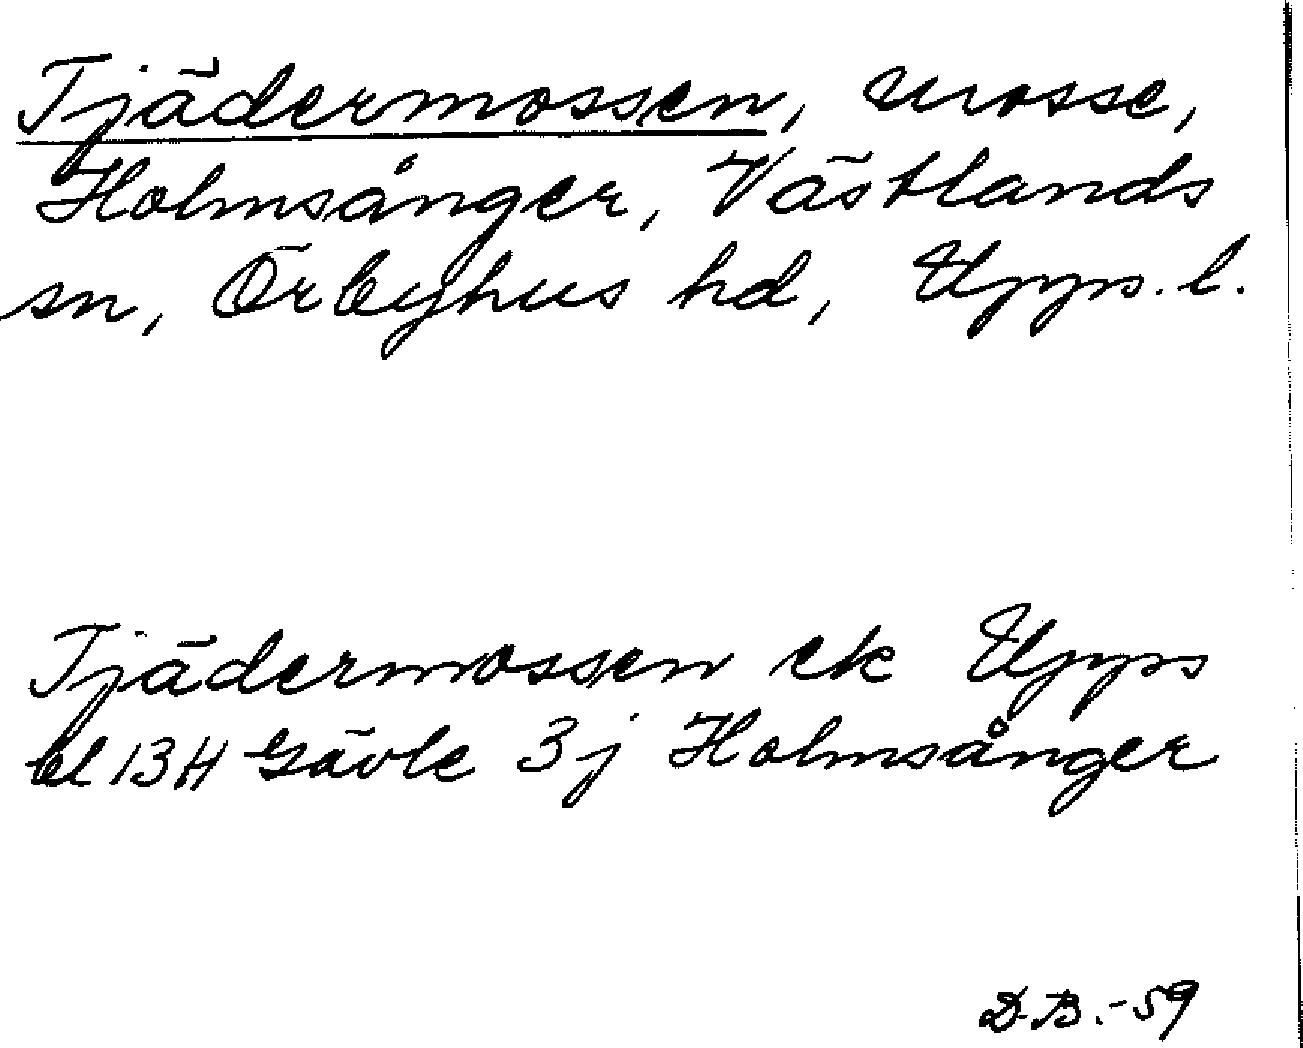 Tjädermossen, mosse,
Holmsånger, Västlands
sn, Örbyhus hd, Upps. l.
Tjädermossen ek Upps
bl 13H Gävle 3j Holmsånger
D.B. -59